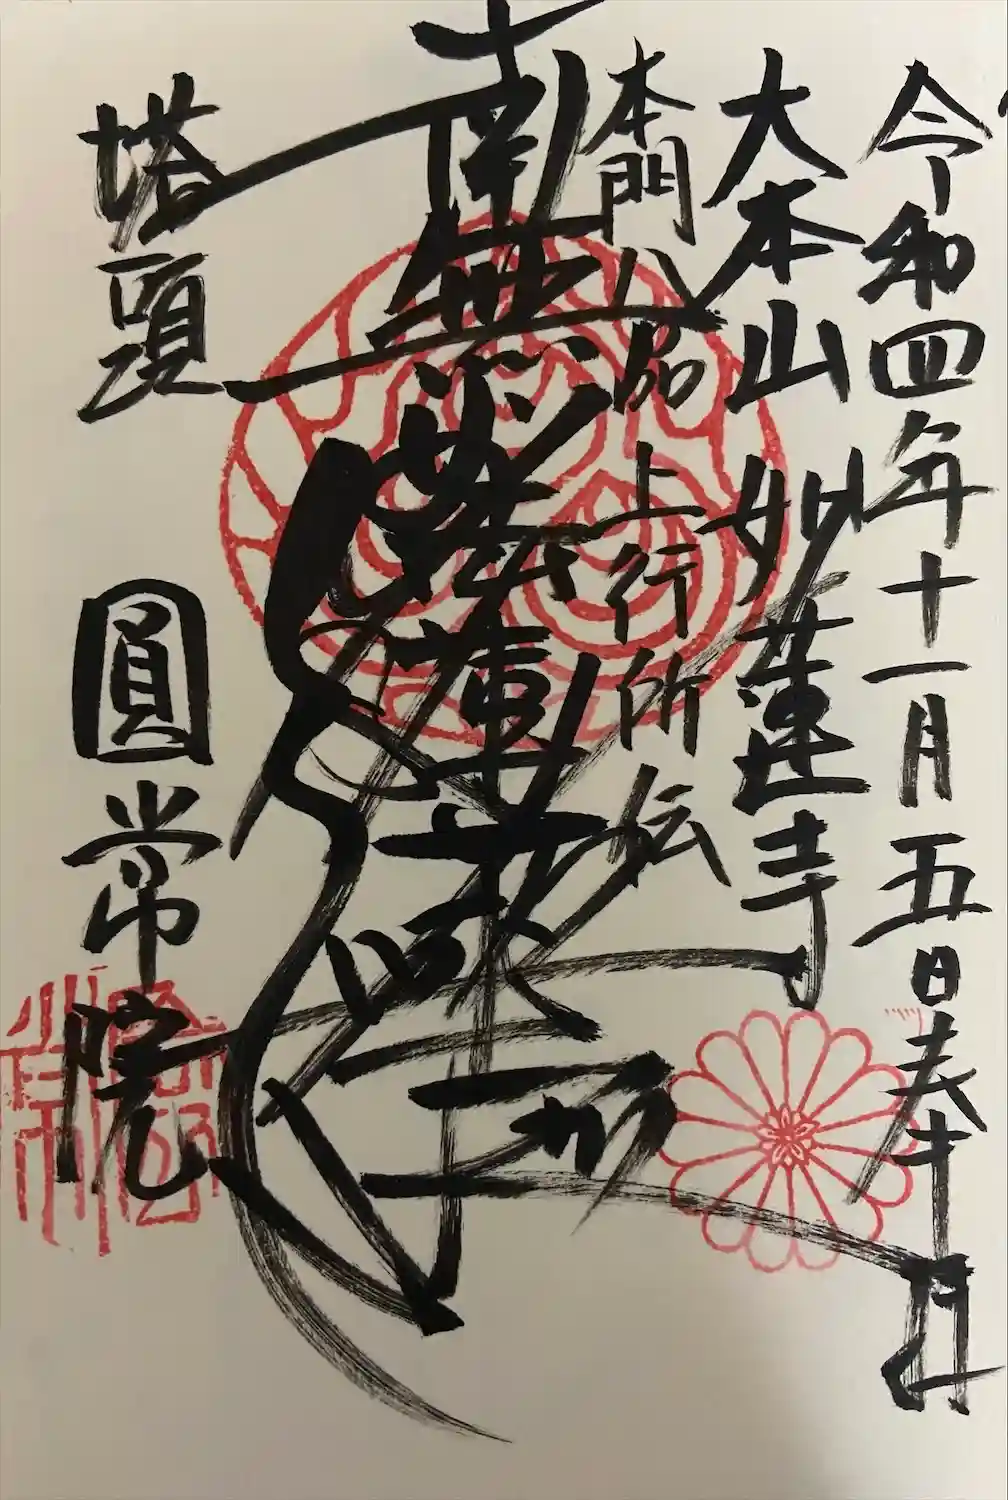 令和四年十一月五日
大本山 妙蓮寺
本門八品上行所伝
南無妙法蓮華経
塔頭 圓常院